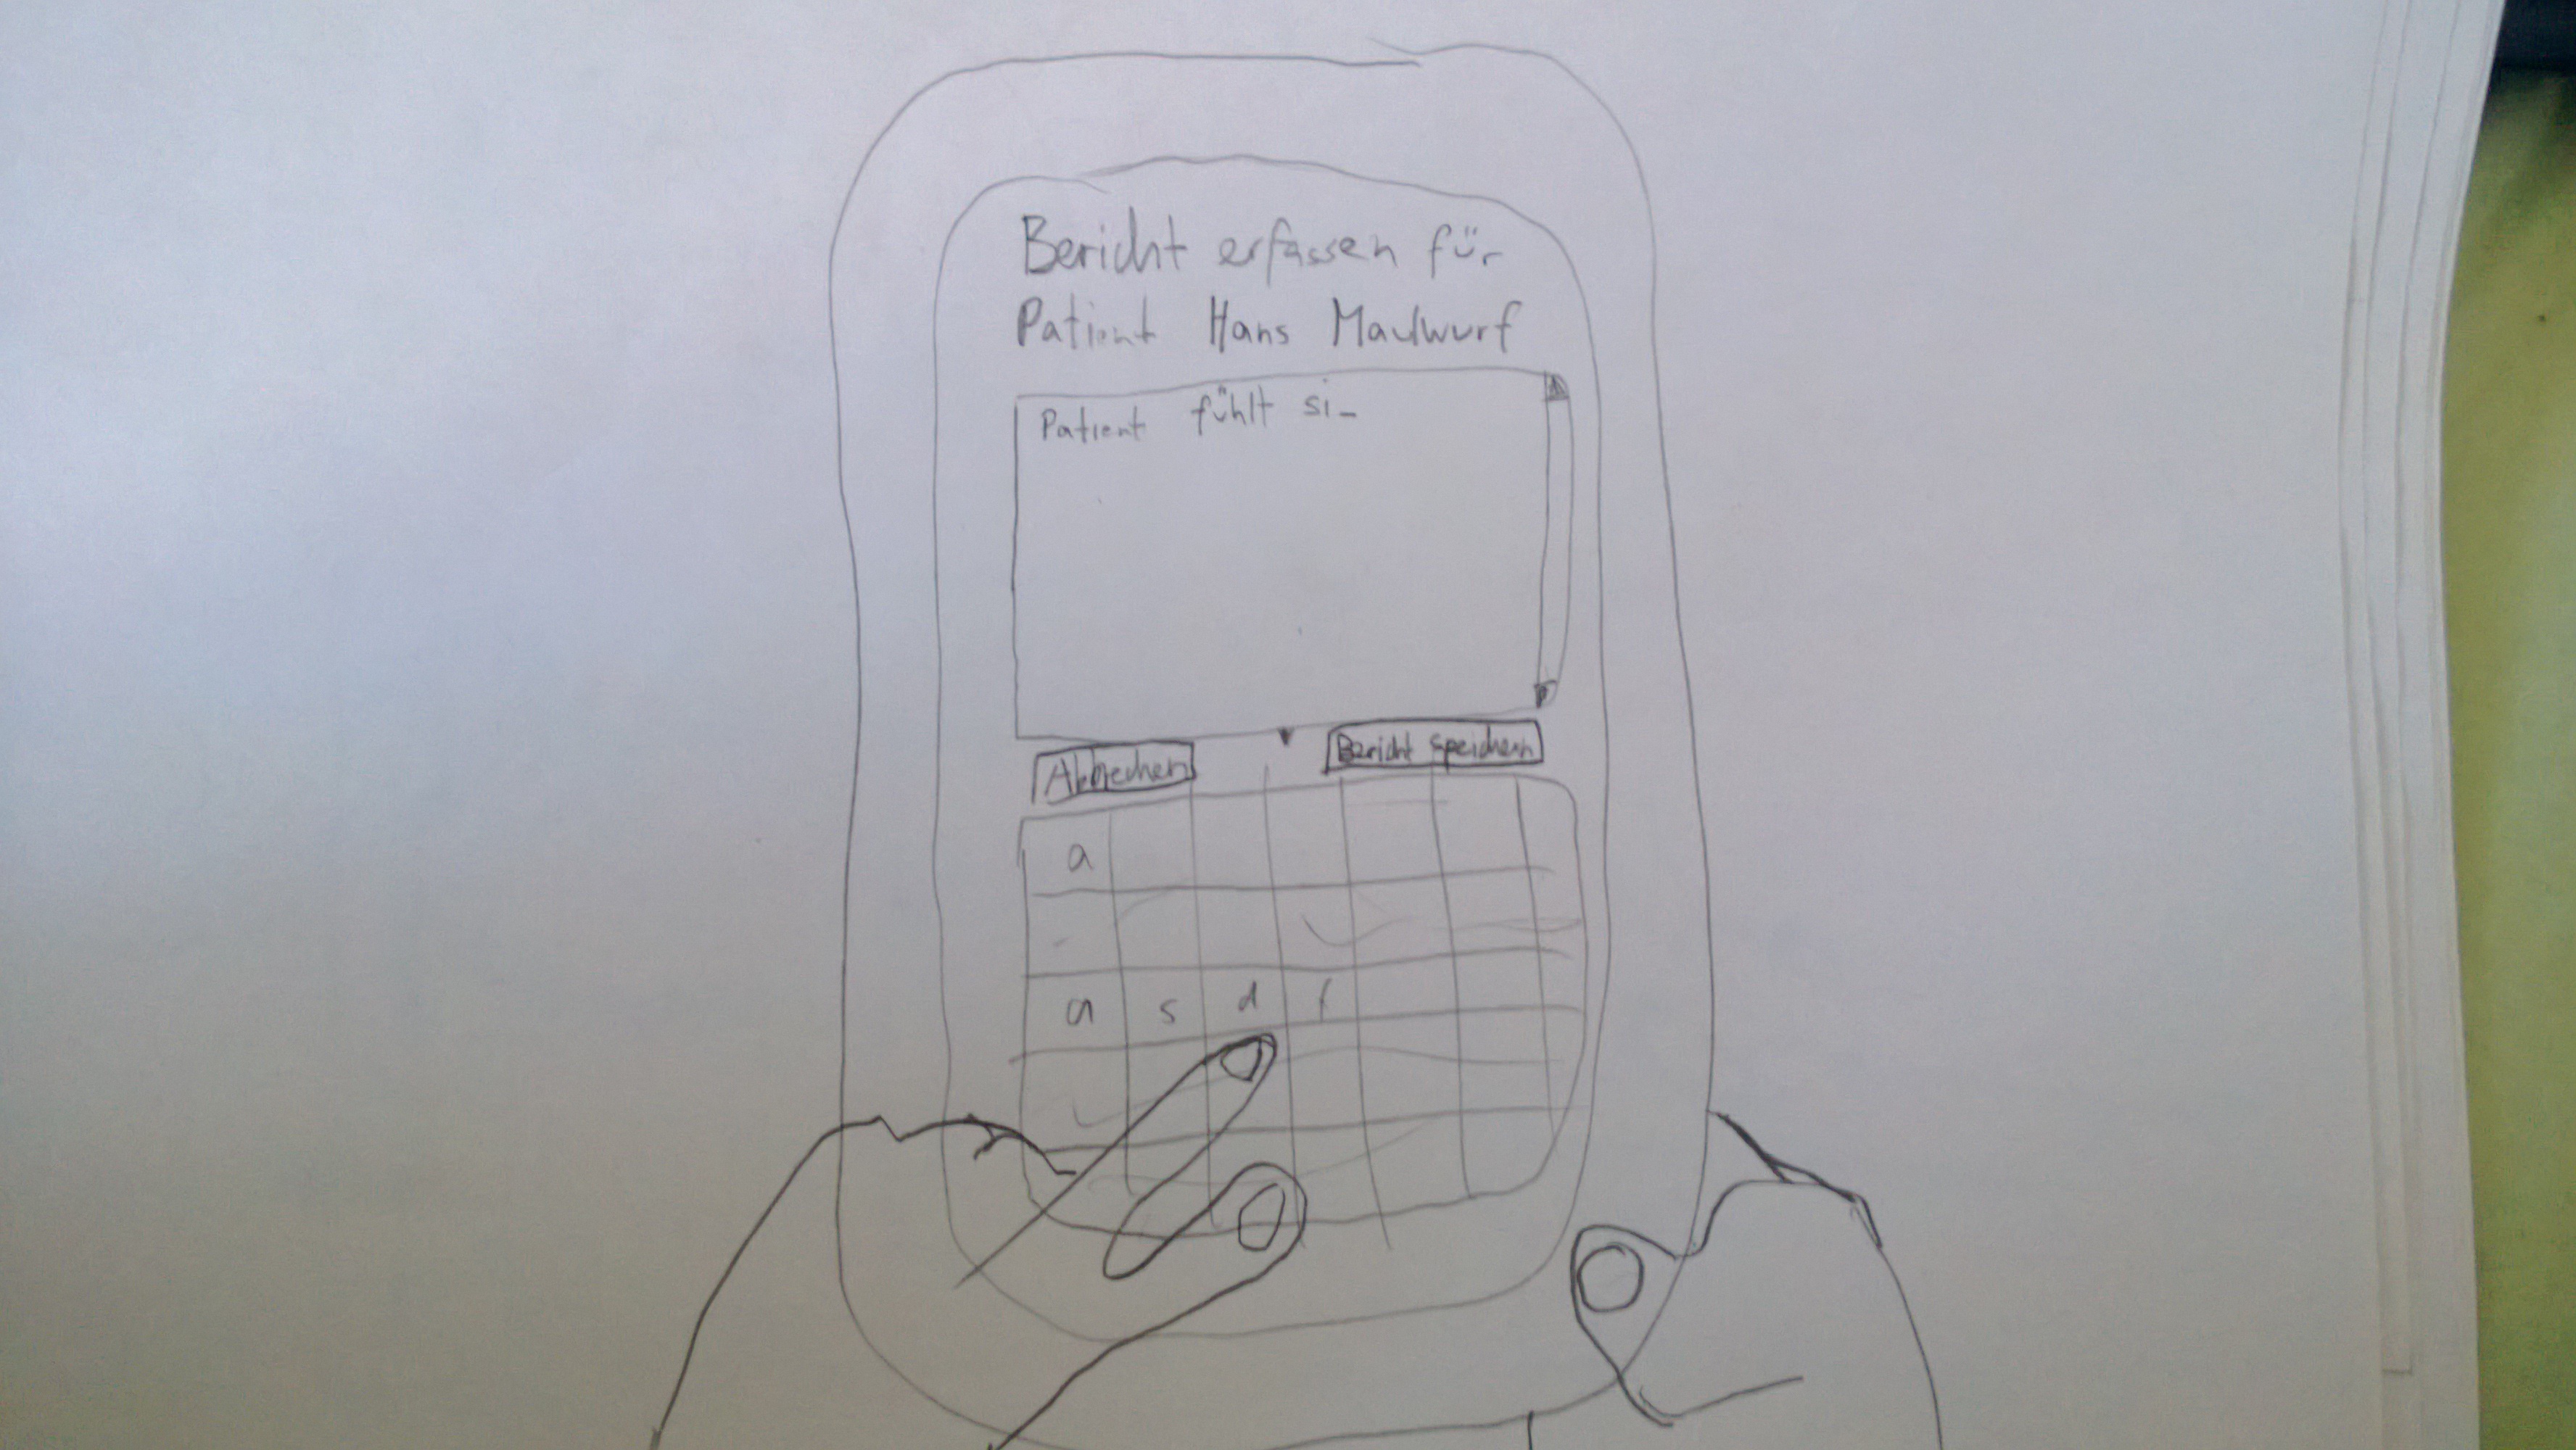 Bericht erfassen für
Patient Hans Maulwurf
Patient fühlt si_
Abbrechen Bericht speichern
a
a s d f